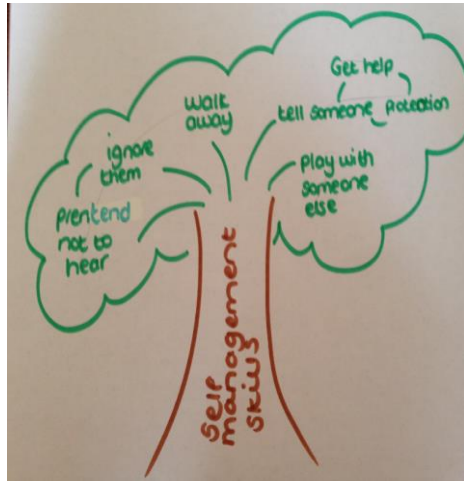 Get help
tell someone
Potection
walk
away
ignore
them
play with
someone
else
prentend
not to
hear
self
management
skills